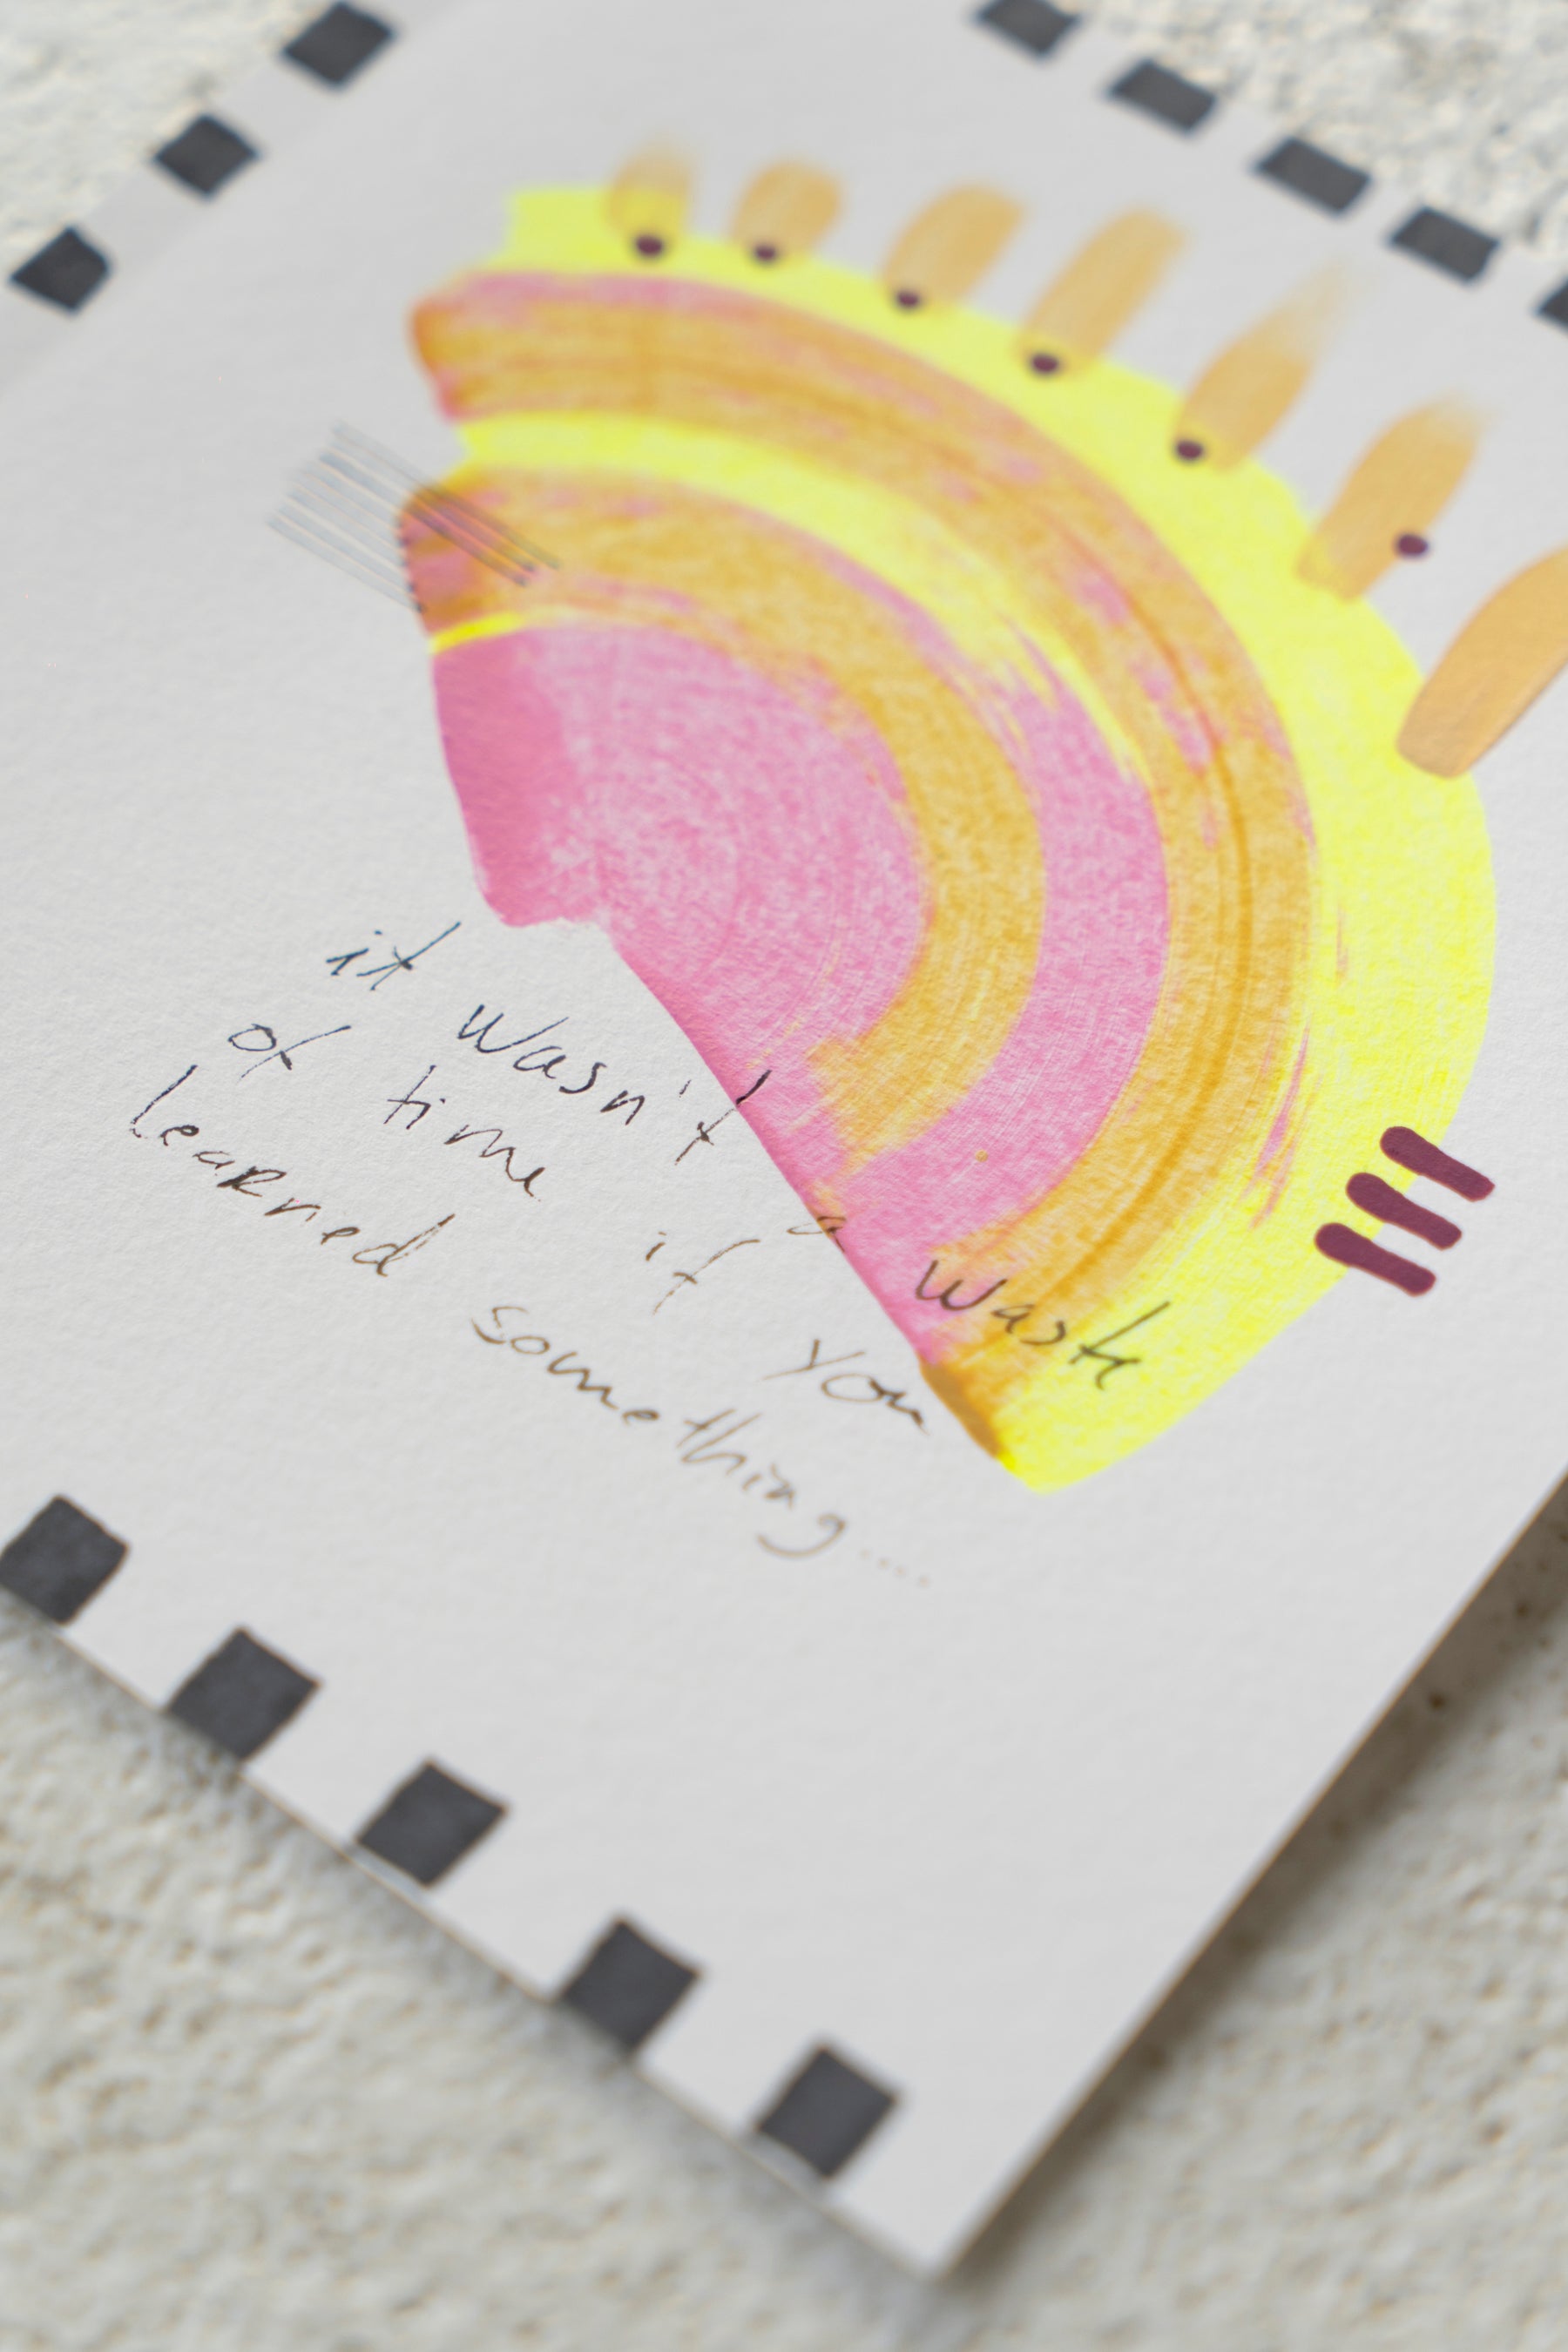 it wasn't a waste
of time if you
learned something....